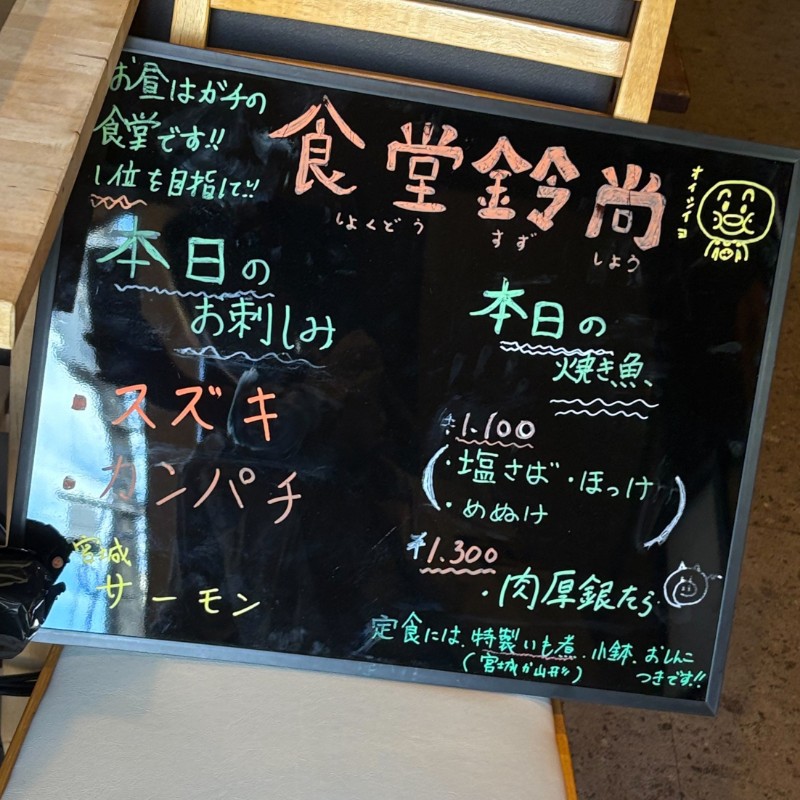 お昼はガチの
食堂です!!
1位を目指して!!
食堂鈴尚
しょくどう すず しょう
オイシイヨ
本日の
お刺しみ
・スズキ
・カンパチ
宮城
サーモン
本日の
焼き魚、
¥1.100
(・塩さば・ほっけ
・めぬけ)
¥1.300
・肉厚銀たら
定食には、特製いも煮、小鉢、おしんこ
(宮城か山形) つきです!!